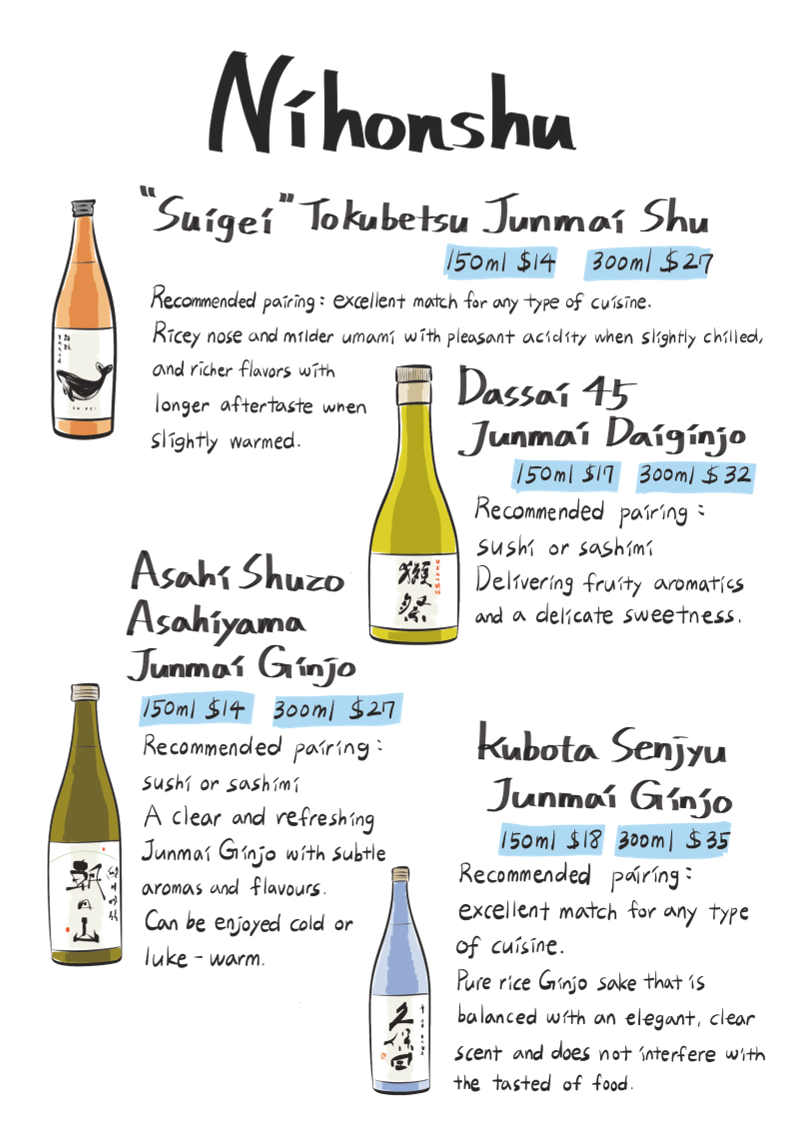 Nihonshu
"Suigei" Tokubetsu Junmai Shu
150ml $14 300ml $27
Recommended pairing: excellent match for any type of cuisine.
Ricey nose and milder umami with pleasant acidity when slightly chilled,
and richer flavors with
longer aftertaste when
slightly warmed.
Dassai 45
Junmai Daiginjo
150ml $17 300ml $32
Recommended pairing:
sushi or sashimi
Delivering fruity aromatics
and a delicate sweetness.
獺祭
Asahi Shuzo
Asahiyama
Junmai Ginjo
150ml $14 300ml $27
Recommended pairing:
sushi or sashimi
A clear and refreshing
Junmai Ginjo with subtle
aromas and flavours.
Can be enjoyed cold or
luke-warm.
朝日山
Kubota Senjyu
Junmai Ginjo
150ml $18 300ml $35
Recommended pairing:
excellent match for any type
of cuisine.
Pure rice Ginjo sake that is
balanced with an elegant, clear
scent and does not interfere with
the tasted of food.
久保田